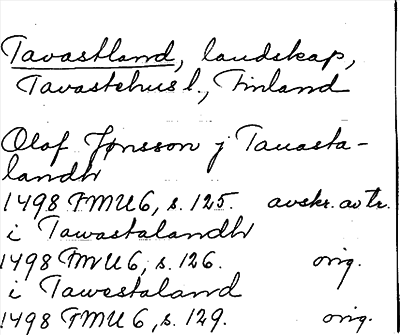 Tavastland, landskap,
Tavastehus l., Finland
Olof Jønsson j Tauasta-
landh
1498 FMU 6, s. 125. avskr. av tr.
i Tawastalandh
1498 FMU 6, s. 126. orig.
i Tawestaland
1498 FMU 6, s. 129. orig.